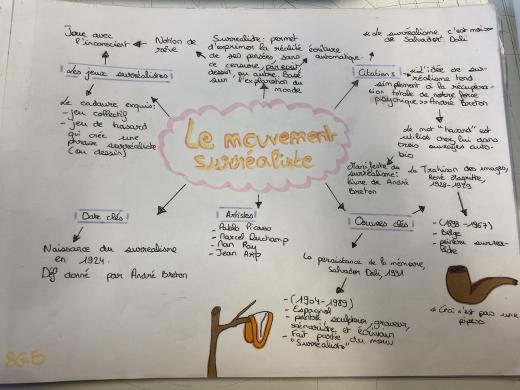 Joue avec
l'inconscient
Notion de
rêve
Surréaliste: permet
d'exprimer la réalité
de ses pensées, sans
ce censure, par écrit,
dessin, ou autre. Basé
sur l'exploration du
monde
écriture
automatique
« Le surréalisme c'est moi »
de Salvador Dali
Les jeux surréalistes
Citations
« L'idée de sur-
réalisme tend
simplement à la récupéra-
tion totale de notre force
psychique » André Breton
Le cadavre exquis:
- jeu collectif
- jeu de hasard
qui crée une
phrase surréaliste
(ou dessin)
Le mouvement
surréaliste
Le mot "hasard" est
utilisé chez lui dans
trois ouvrages auto-
bio
Manifeste du
surréalisme:
livre de André
Breton
La Trahison des images,
René Magritte,
1928-1929
Date clés
Artistes
Oeuvres clés
- Pablo Picasso
- Marcel Duchamp
- Man Ray
- Jean Arp
Naissance du surréalisme
en 1924.
Déf donné par André Breton
- (1898-1967)
- Belge
- peintre surréa-
liste
La persistance de la mémoire,
Salvador Dali, 1931
- (1904-1989)
- Espagnol
- peintre, sculpteur, graveur,
scénariste et écrivain
- Fait partie du mouv
"surréaliste"
« Ceci n'est pas une
pipe »
8G5